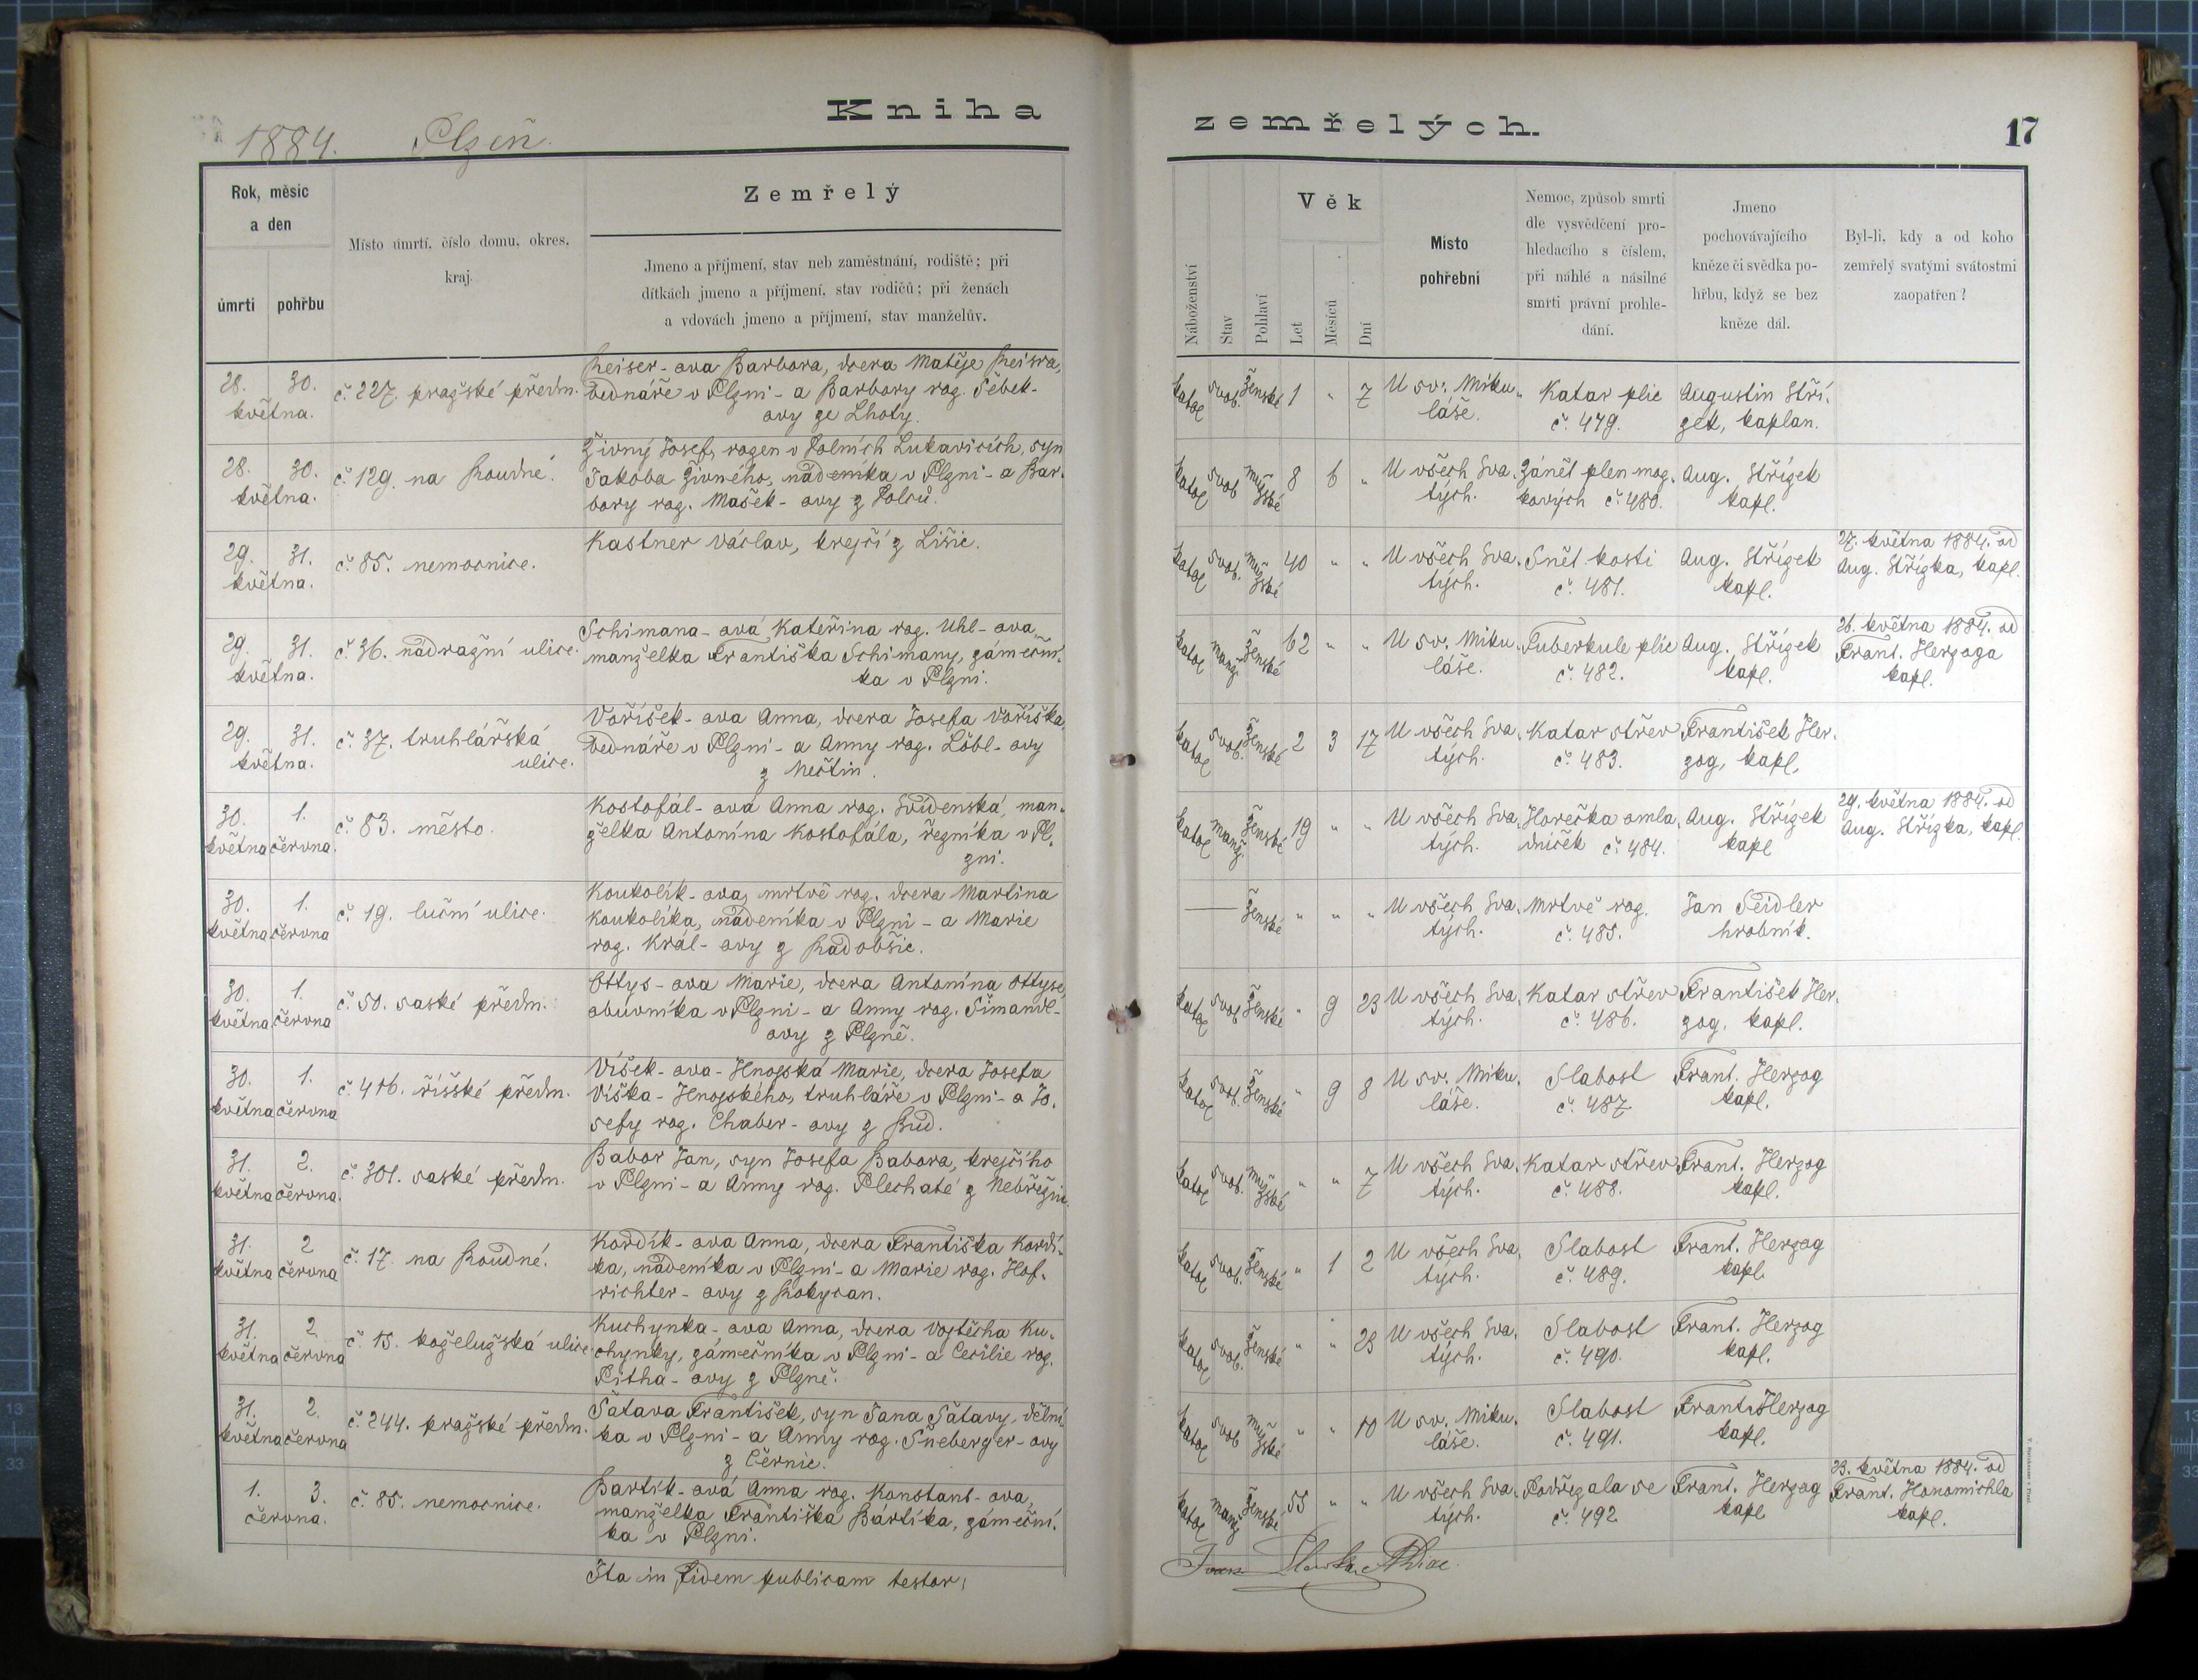 Kniha
1884. Plzeň.
Rok, měsíc
a den
úmrtí
pohřbu
Místo úmrtí, číslo domu, okres,
kraj.
Zemřelý
Jmeno a příjmení, stav neb zaměstnání, rodiště; při
dítkách jmeno a příjmení, stav rodičů; při ženách
a vdovách jmeno a příjmení, stav manželův.
28. 30.
května.
č. 227. pražské předm.
Reiser-ova Barbora, dcera Matěje Reisra,
bednáře v Plzni - a Barbory roz. Šebek-
ovy ze Lhoty.
28. 30.
května.
č. 129. na Roudné.
Živný Josef, rozen v Dolních Lukavicích, syn
Jakoba Živného, nádeníka v Plzni - a Bar-
bory roz. Mašek-ovy z Dolců.
29. 31.
května.
č. 85. nemocnice.
Kastner Václav, krejčí z Lišic.
29. 31.
května.
č. 36. nádražní ulice.
Schimana-ová Kateřina roz. Uhl-ova,
manželka Františka Schimany, zámeční-
ka v Plzni.
29. 31.
května.
č. 37. truhlářská
ulice.
Voříšek-ova Anna, dcera Josefa Voříška,
bednáře v Plzni - a Anny roz. Löbl-ovy
z Nečtin.
30. 1.
května června.
č. 83. město.
Kostofál-ová Anna roz. Svídenská, man-
želka Antonína Kostofála, řezníka v Pl-
zni.
30. 1.
května června
č. 19. luční ulice.
Koukolík-ova, mrtvě roz. dcera Martina
Koukolíka, nádeníka v Plzni - a Marie
roz. Král-ovy z Radobšic.
30. 1.
května června
č. 50. saské předm.
Ottys-ova Marie, dcera Antonína Ottyse,
obuvníka v Plzni - a Anny roz. Šimandl-
ovy z Plzně.
30. 1.
května června
č. 416. říšské předm.
Víšek-ova-Hnojská Marie, dcera Josefa
Víška-Hnojského, truhláře v Plzni - a Jo-
sefy roz. Chaber-ovy z Bud.
31. 2.
května června.
č. 301. saské předm.
Babor Jan, syn Josefa Babora, krejčího
v Plzni - a Anny roz. Plechaté z Nebřezin.
31. 2
května června
č. 17. na Roudné.
Kordík-ova Anna, dcera Františka Kordí-
ka, nádeníka v Plzni - a Marie roz. Hof-
richter-ovy z Rokycan.
31. 2
května června
č. 15. koželužská ulice.
Kuchynka-ova Anna, dcera Vojtěcha Ku-
chynky, zámečníka v Plzni - a Cecilie roz.
Pitha-ovy z Plzně.
31. 2.
května června
č. 244. pražské předm.
Šatava František, syn Jana Šatavy, dělní-
ka v Plzni - a Anny roz. Šneberger-ovy
z Černic.
1. 3.
června.
č. 85. nemocnice.
Bartík-ová Anna roz. Konstant-ova,
manželka Františka Bartíka, zámeční-
ka v Plzni.
Ita in fidem publicam testor,
zemřelých.
17
Náboženství
Stav
Pohlaví
Věk
Let
Měsíců
Dní
Místo
pohřební
Nemoc, způsob smrti
dle vysvědčení pro-
hledacího s číslem,
při náhlé a násilné
smrti právní prohle-
dání.
Jmeno
pochovávajícího
kněze či svědka po-
hřbu, když se bez
kněze dál.
Byl-li, kdy a od koho
zemřelý svatými svátostmi
zaopatřen?
katol svob. ženské 1 " 7
U sv. Miku-
láše.
Katar plic
č. 479.
Augustin Stří-
zek, kaplan.
katol svob mužské 8 6 "
U všech Sva-
tých.
Zánět plen moz-
kových č. 480.
Aug. Střízek
kapl.
katol svob. mužské 40 " "
U všech Sva-
tých.
Snět kosti
č. 481.
Aug. Střízek
kapl.
27. května 1884. od
Aug. Střízka, kapl.
katol manž. ženské 62 " "
U sv. Miku-
láše.
Tuberkule plic
č. 482.
Aug. Střízek
kapl.
26. května 1884. od
Frant. Herzoga
kapl.
katol svob. ženské 2 3 17
U všech Sva-
tých.
Katar střev
č. 483.
František Her-
zog, kapl.
katol manž. ženské 19 " "
U všech Sva-
tých.
Horečka omla-
dniček č. 484.
Aug. Střízek
kapl
29. května 1884. od
Aug. Střízka, kapl.
— ženské " " "
U všech Sva-
tých.
Mrtvě roz.
č. 485.
Jan Seidler
hrobník.
katol svob. ženské " 9 23
U všech Sva-
tých.
Katar střev
č. 486.
František Her-
zog, kapl.
katol svob. ženské " 9 8
U sv. Miku-
láše.
Slabost
č. 487.
Frant. Herzog
kapl.
katol svob. mužské " " 7
U všech Sva-
tých.
Katar střev
č. 488.
Frant. Herzog
kapl.
katol svob. ženské " 1 2
U všech Sva-
tých.
Slabost
č. 489.
Frant. Herzog
kapl.
katol svob. ženské " " 23
U všech Sva-
tých.
Slabost
č. 490.
Frant. Herzog
kapl.
katol svob mužské " " 10
U sv. Miku-
láše.
Slabost
č. 491.
Frant. Herzog
kapl.
katol manž ženské 55 " "
U všech Sva-
tých.
Podřezala se
č. 492
Frant. Herzog
kapl
23. května 1884. od
Frant. Honomichla
kapl.